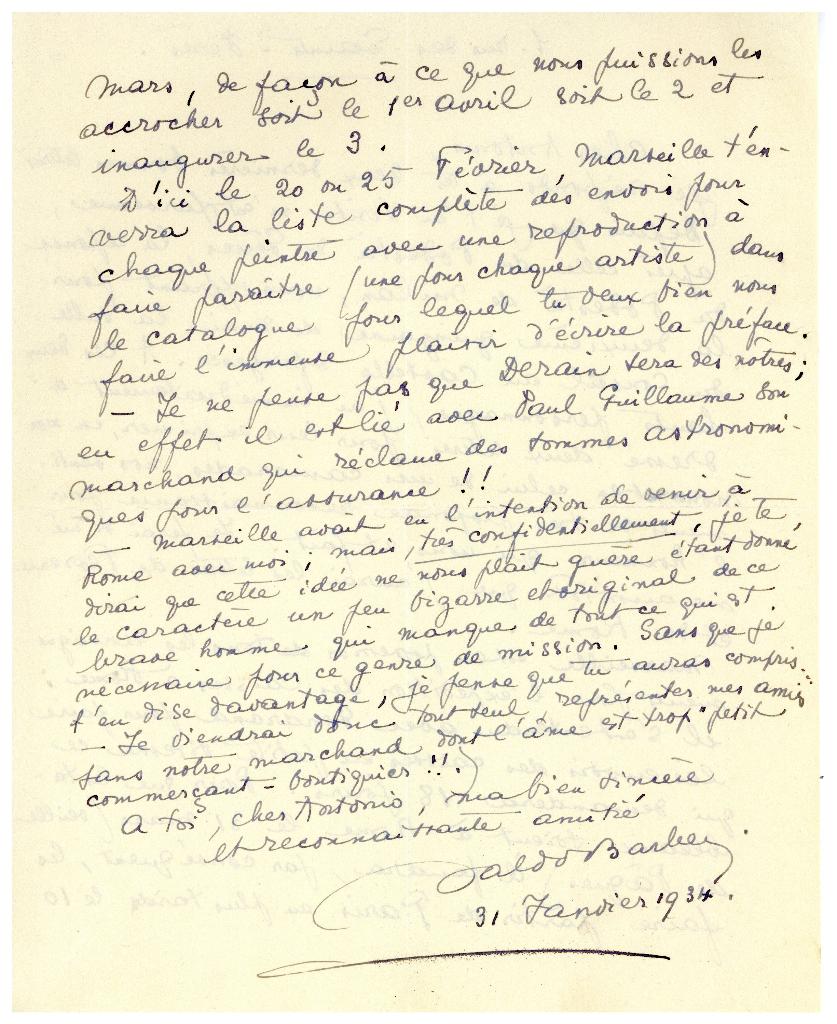 Mars, de façon à ce que nous puissions les
accrocher soit le 1er avril soit le 2 et
inaugurer le 3.
D'ici le 20 ou 25 Février, Marseille t'en-
verra la liste complète des envois pour
chaque peintre avec une reproduction à
faire paraître (une pour chaque artiste) dans
le catalogue pour lequel tu veux bien nous
faire l'immense plaisir d'écrire la préface.
— Je ne pense pas que Derain sera des nôtres;
en effet il est lié avec Paul Guillaume son
marchand qui réclame des sommes astronomi-
ques pour l'assurance!!
— Marseille avait eu l'intention de venir à
Rome avec moi; mais, très confidentiellement, je te
dirai que cette idée ne nous plaît guère étant donné
le caractère un peu bizarre et original de ce
brave homme qui manque de tout ce qui est
nécessaire pour ce genre de mission. Sans que je
t'en dise davantage, je pense que tu auras compris..
— Je viendrai donc tout seul, représenter mes amis
sans notre marchand dont l'âme est trop "petit
commerçant-boutiquier!!!)
A toi, cher Antonio, ma bien sincère
et reconnaissante amitié.
31 Janvier 1934.